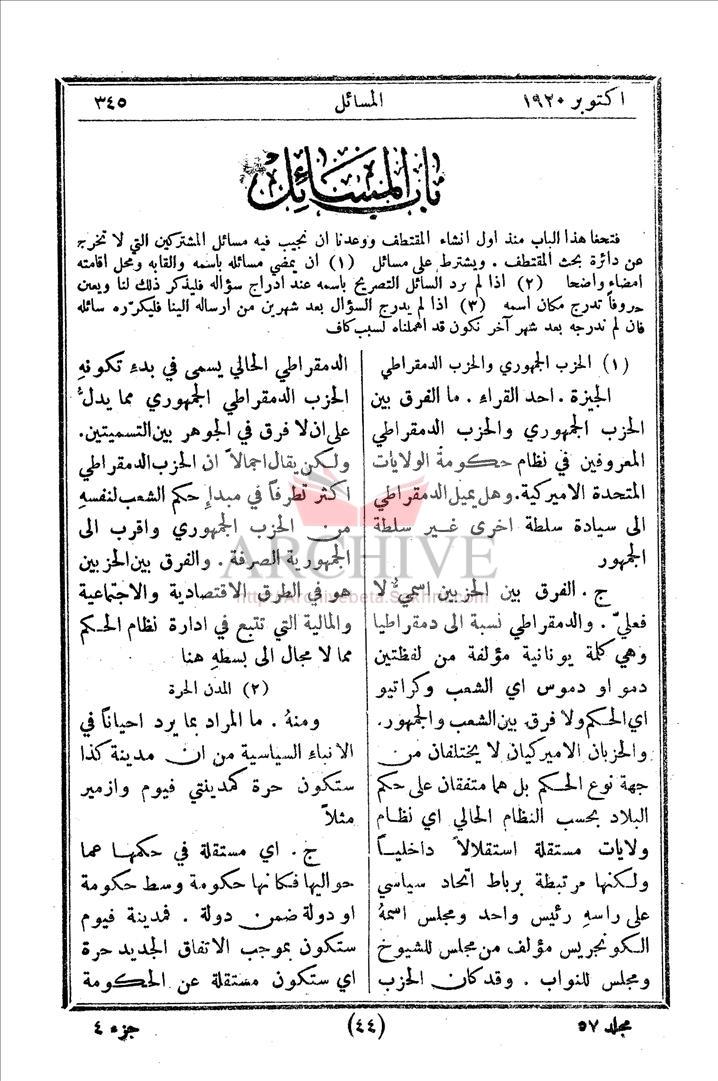 اكتوبر ١٩٢٠
المسائل
٣٤٥
باب المسائل
فتحنا هذا الباب منذ اول انشاء المقتطف ووعدنا ان نجيب فيه مسائل المشتركين التي لا تخرج
عن دائرة بحث المقتطف . ويشترط على مسائل (١) ان يمضي مسائله باسمه والقابه ومحل اقامته
امضاء واضحا (٢) اذا لم يرد السائل التصريح باسمه عند ادراج سؤاله فليذكر ذلك لنا ويعين
حروفاً تدرج مكان اسمه (٣) اذا لم يدرج السؤال بعد شهرين من ارساله الينا فليكرّره سائله
فان لم ندرجه بعد شهر آخر نكون قد اهملناه لسبب كاف
(١) الحزب الجمهوري والحزب الدمقراطي
الجيزة . احد القراء . ما الفرق بين
الحزب الجمهوري والحزب الدمقراطي
المعروفين في نظام حكومة الولايات
المتحدة الاميركية . وهل يميل الدمقراطي
الى سيادة سلطة اخرى غير سلطة
الجمهور
ج . الفرق بين الحزبين اسميٌّ لا
فعليّ . والدمقراطي نسبة الى دمقراطيا
وهي كلمة يونانية مؤلفة من لفظتين
دمو او دموس اي الشعب وكراتيو
اي الحكم ولا فرق بين الشعب والجمهور .
والحزبان الاميركيان لا يختلفان من
جهة نوع الحكم بل هما متفقان على حكم
البلاد بحسب النظام الحالي اي نظام
ولايات مستقلة استقلالاً داخليـاً
ولكنها مرتبطة برباط اتحاد سياسي
على راسهِ رئيس واحد ومجلس اسمهُ
الكونجريس مؤلف من مجلس للشيوخ
ومجلس للنواب . وقد كان الحزب
الدمقراطي الحالي يسمى في بدء تكونهِ
الحزب الدمقراطي الجمهوري مما يدلُّ
على ان لا فرق في الجوهر بين التسميتين .
ولكن يقال اجمالاً ان الحزب الدمقراطي
كثر تطرفاً في مبدإ حكم الشعب لنفسهِ
من الحزب الجمهوري واقرب الى
الجمهورية الصرفة . والفرق بين الحزبين
هو في الطرق الاقتصادية والاجتماعية
والمالية التي تتبع في ادارة نظام الحكم
مما لا مجال الى بسطهِ هنا
(٢) المدن الحرة
ومنهُ . ما المراد بما يرد احياناً في
الانباء السياسية من ان مدينة كذا
ستكون حرة كمدينتي فيوم وازمير
مثلاً
ج . اي مستقلة في حكمها عما
حواليها فكأنها حكومة وسط حكومة
او دولة ضمن دولة . فمدينة فيوم
ستكون بموجب الاتفاق الجديد حرة
اي ستكون مستقلة عن الحكومة
مجلد ٥٧
(٤٤)
جزء ٤
ARCHIVE
http://Archivebeta.Sakhrit.com